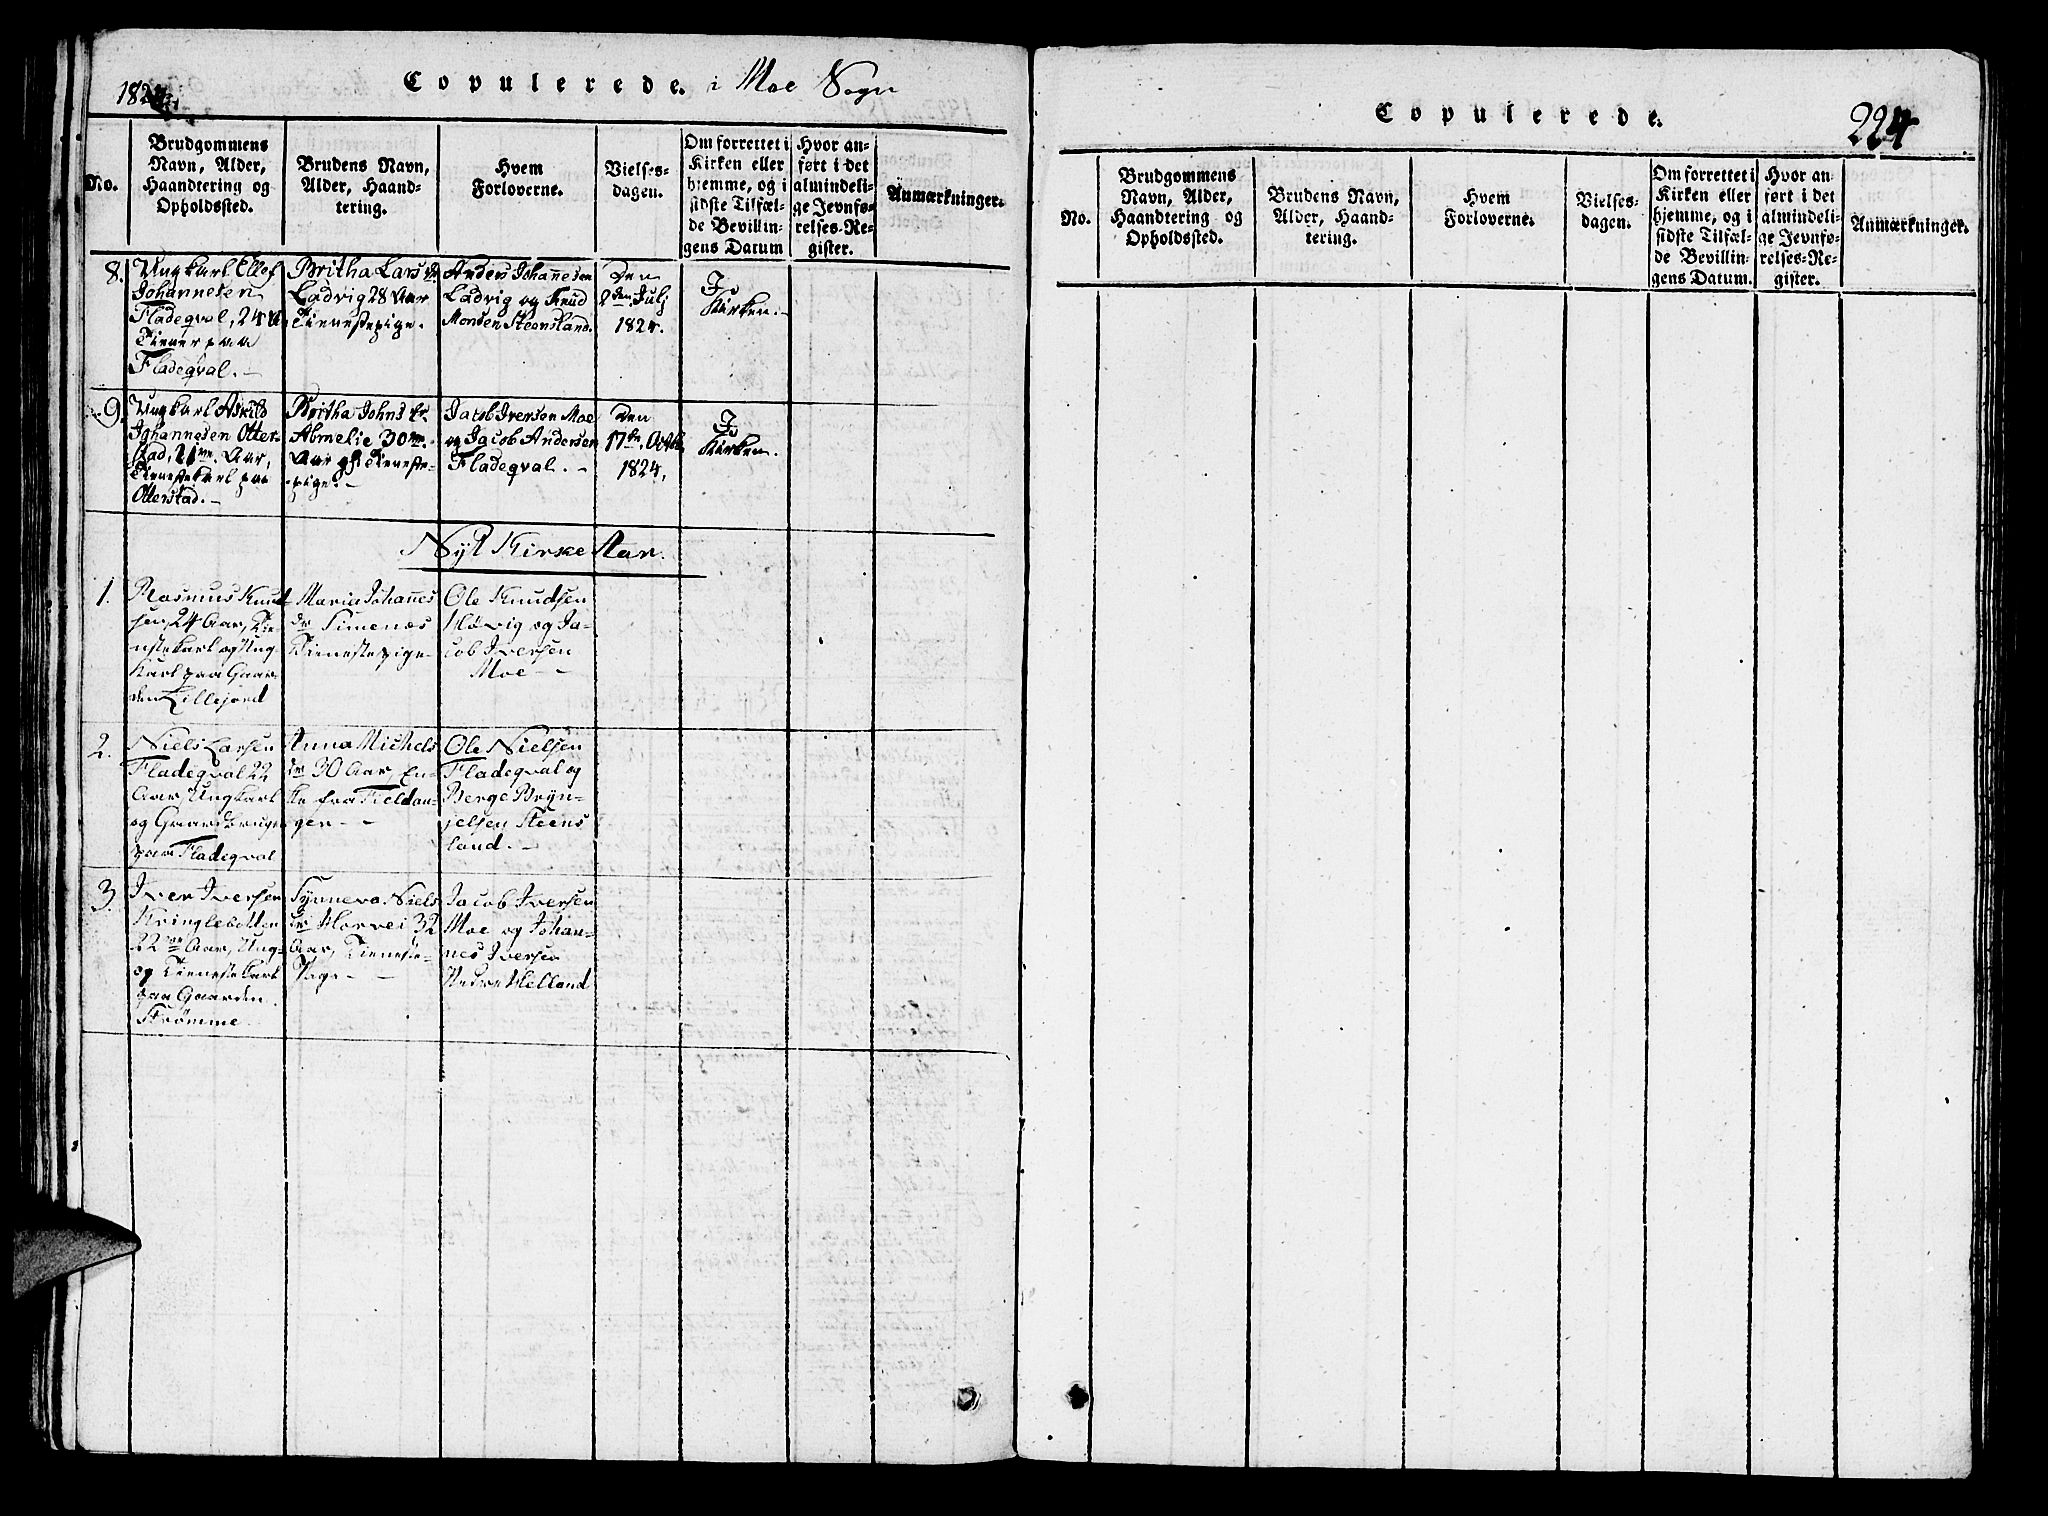 1824
Copulerede. i Moe Sogn
No.
Brudgommens
Navn, Alder,
Haandtering og
Opholdssted.
Brudens Navn,
Alder, Haand-
tering.
Hvem
Forloverne.
Vielses-
dagen.
Om forrettet i
Kirken eller
hjemme, og i
sidste Tilfæl-
de Bevillin-
gens Datum
Hvor an-
ført i det
almindeli-
ge Jevnfø-
relses-Re-
gister.
Anmærkninger.
8.
Ungkarl Ellef
Johannesen
Fladeqval, 24 A
Tiener paa
Fladeqval. -
Britha Lars dr
Ladvig 28 Aar
Tienestepige.
Anders Johanesen
Ladvig og Knud
Monsen Steensland.
Den
2den Julj
1824.
I
Kirken. -
9.
Ungkarl Askild
Johannesen Otter-
stad, 21 Aar,
Tienestekarl paa
Otterstad. -
Britha Johns dr.
Abmelie 30
Aar Tieneste-
-pige. -
Jacob Iversen Moe
og Jacob Andersen
Fladeqval. -
Den
17de Octb
1824.
I
Kirken.
Nyt Kirke Aar.
1.
Rasmus Knud
sen, 24 Aar, Tie-
nstekarl og Ung-
karl paa Gaar-
den Lillejord
Maria Johanes
dr Simenæs
Tienestepige -
Ole Knudsen
Høvig og Ja-
cob Iversen
Moe - -
2.
Niels Larsen
Fladeqval 22
Aar, Ungkarl
og Gaardbruger
paa Fladeqval
Anna Michels
dr 30 Aar, En-
ke fra Fieldan-
ger - -
Ole Nielsen
Fladeqval og
Berge Bryn-
jelsen Steens
land. -
3.
Iver Iversen
Kringlebotten
22 Aar, Ung-
og Tienestekarl
paa Gaarden
Strømme
Synneva Niels
dr Horvei 32
Aar, Tieneste-
Pige - -
Jacob Iversen
Moe og Johan-
nes Iversen
Nedre Helland
Copulerede.
224
No.
Brudgommens
Navn, Alder,
Haandtering og
Opholdssted.
Brudens Navn,
Alder, Haand-
tering.
Hvem
Forloverne.
Vielses-
dagen.
Om forrettet i
Kirken eller
hjemme, og i
sidste Tilfæl-
de Bevillin-
gens Datum.
Hvor an-
ført i det
almindeli-
ge Jevnfø-
relses-Re-
gister.
Anmærkninger.